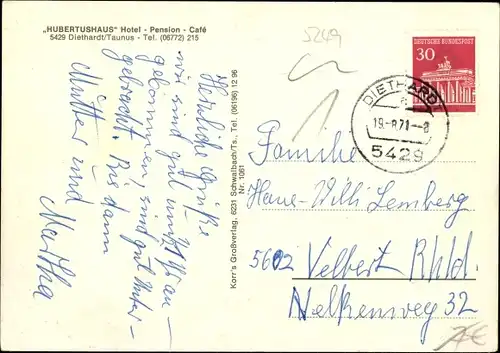 „HUBERTUSHAUS" Hotel - Pension - Café
5429 Diethardt/Taunus - Tel. (06772) 215
Herzliche Grüße
wir sind gut
gekommen, sind gut unter-
gebracht. Bis dann
Mutter und
Martha
Korr's Großverlag, 6231 Schwalbach/Ts., Tel. (06196) 12 96
Nr. 1061
5249
DEUTSCHE BUNDESPOST
30
DIETHARDT
a
19.-8.71.-8
5429
Familie
Hans-Willi Lemberg
5602 Velbert Rhld.
Nelkenweg 32